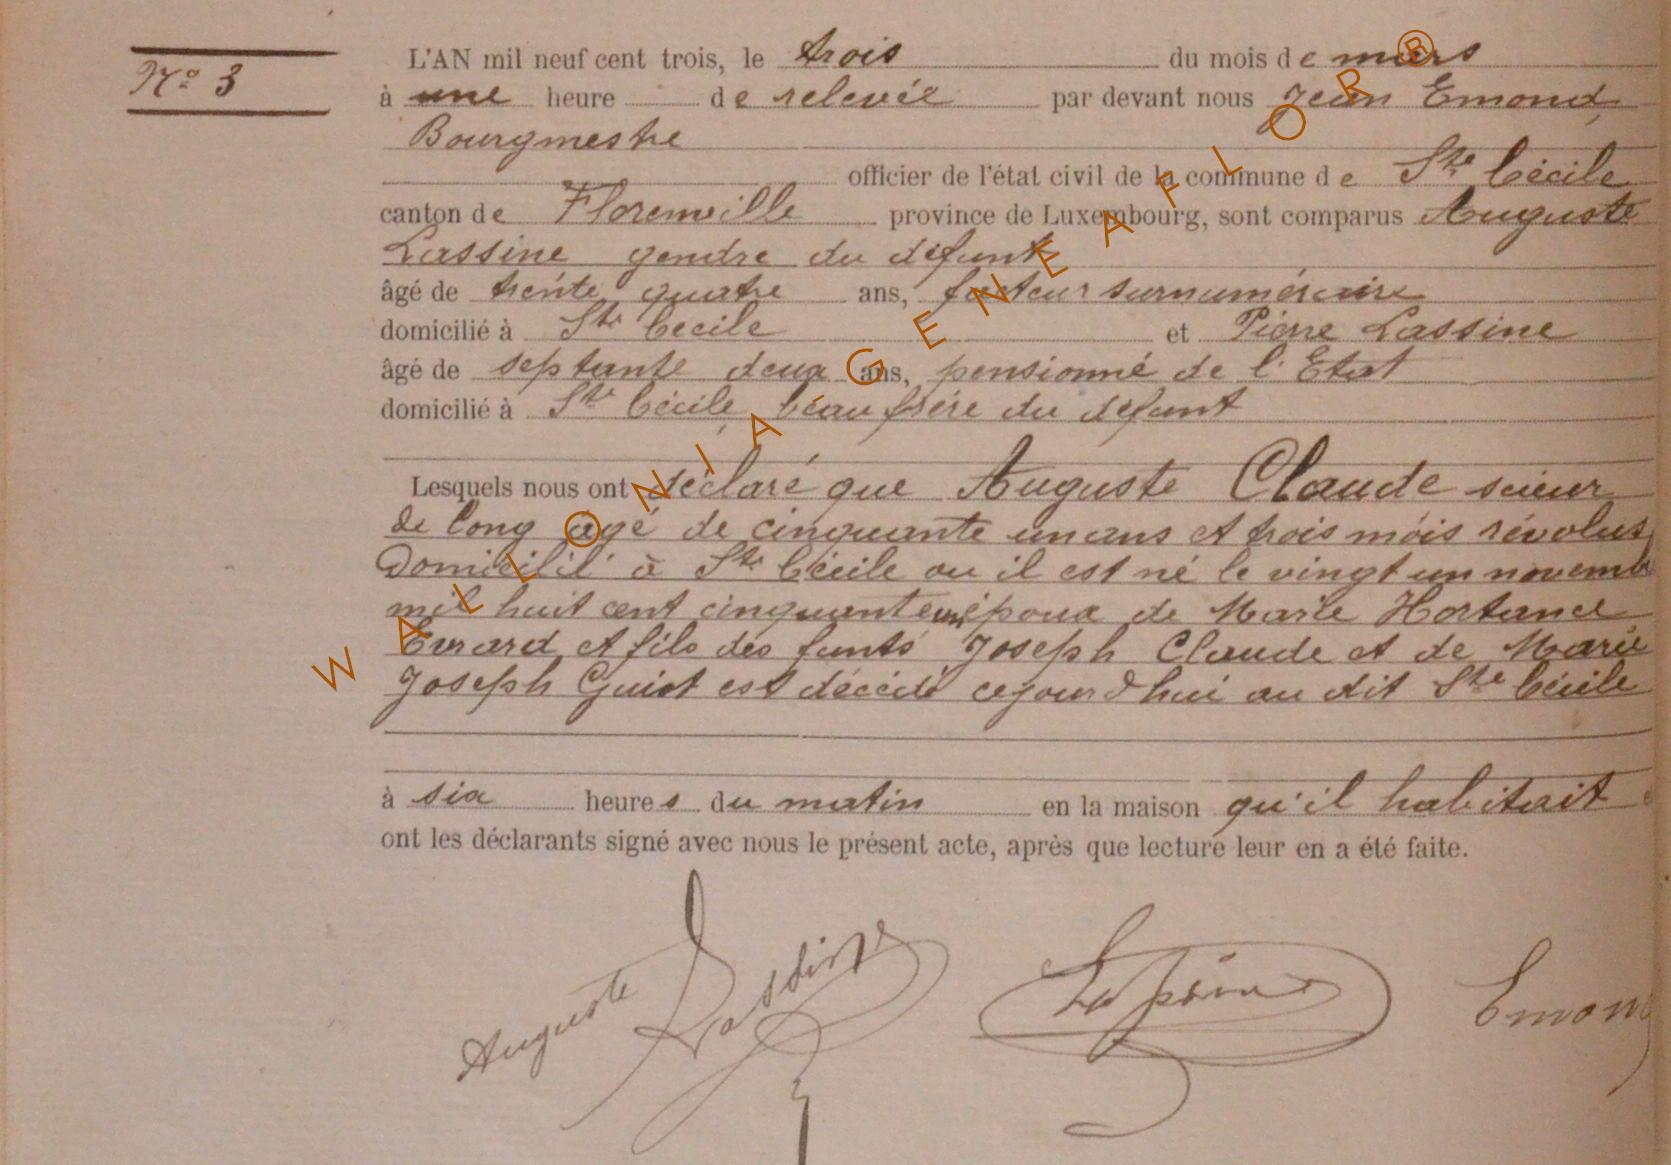 N° 3
L'AN mil neuf cent trois, le trois du mois de mars
à une heure de relevée par devant nous Jean Emond,
Bourgmestre
officier de l'état civil de la commune de Ste Cécile
canton de Florenville province de Luxembourg, sont comparus Auguste
Lassine gendre du défunt
âgé de trente quatre ans, facteur surnuméraire
domicilié à Ste Cécile et Pierre Lassine
âgé de septante deux ans, pensionné de l'Etat
domicilié à Ste Cécile, beau frère du défunt
Lesquels nous ont déclaré que Auguste Claude scieur
de long âgé de cinquante un ans et trois mois révolus
domicilié à Ste Cécile ou il est né le vingt un novemb
mil huit cent cinquante un époux de Marie Hortance
Evrard et fils des funts Joseph Claude et de Marie
Joseph Guiot est décédé cejourd'hui au dit Ste Cécile
à six heures du matin en la maison qu'il habitait
ont les déclarants signé avec nous le présent acte, après que lecture leur en a été faite.
Auguste Lassine Emond
WALLONIA GENEAFLOR®